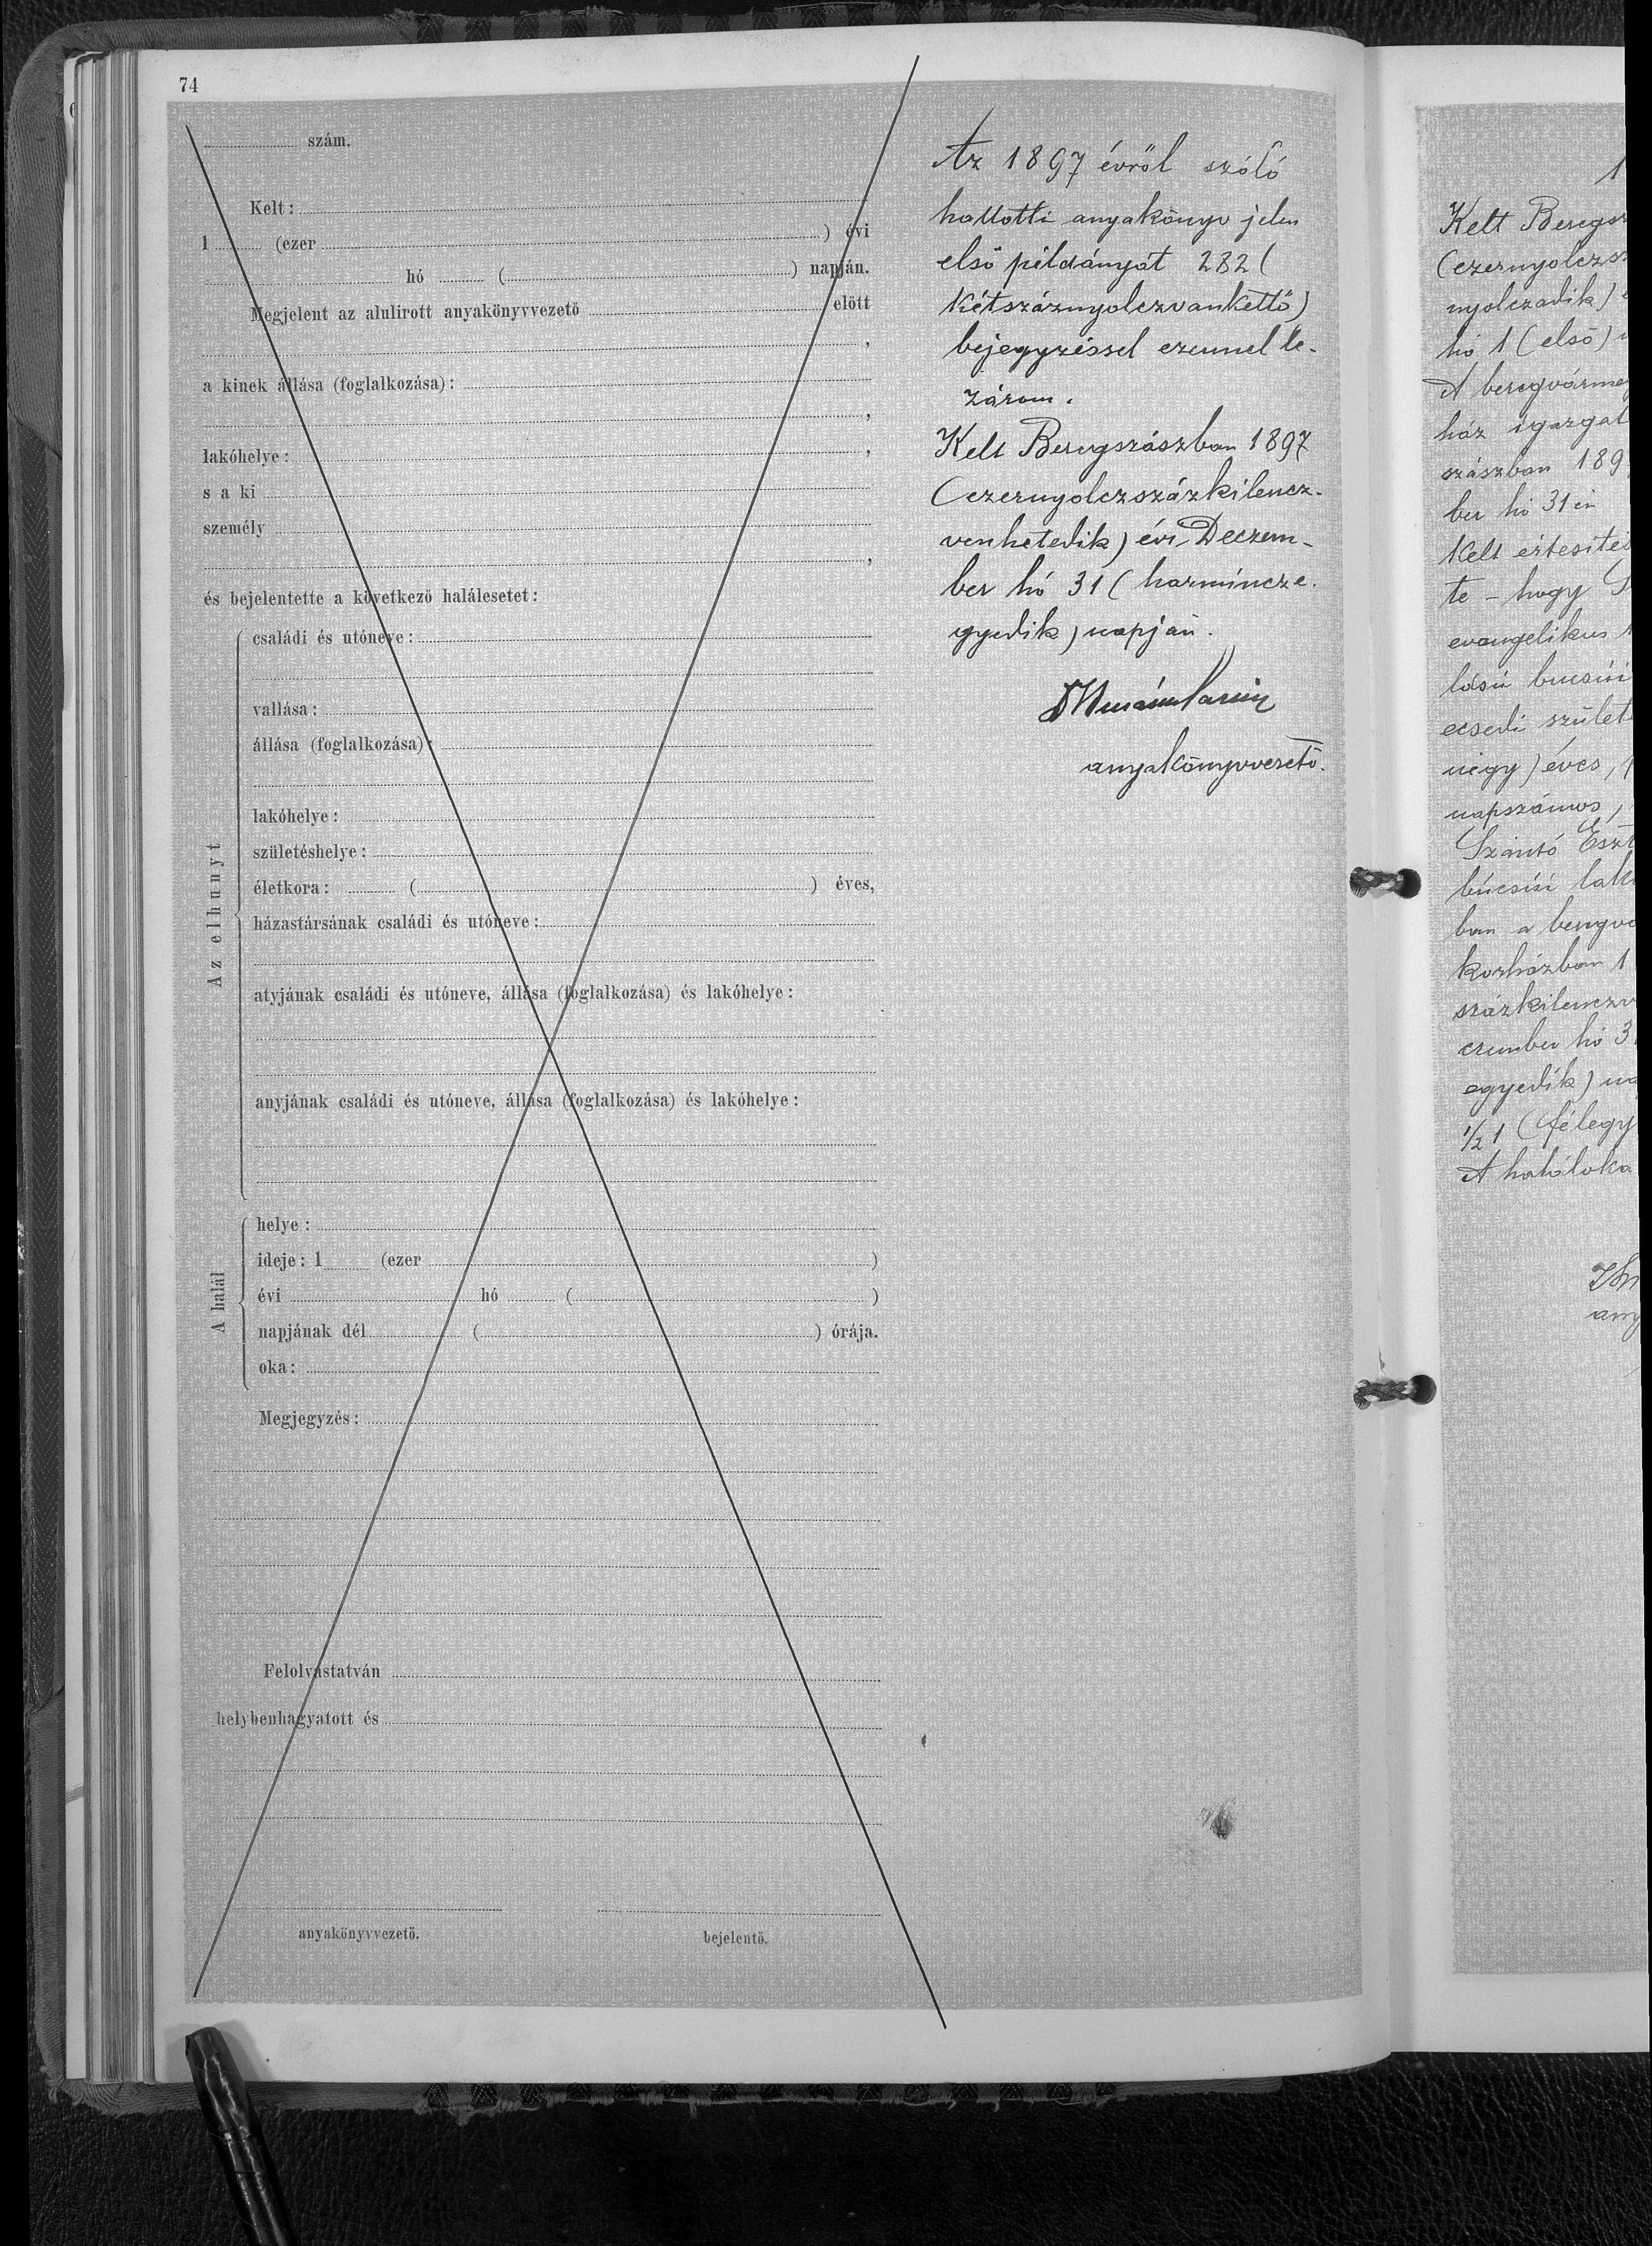 74
szám.
Kelt:
1 (ezer ) évi
hó ( ) napján.
Megjelent az alulirott anyakönyvvezető előtt
,
a kinek állása (foglalkozása):
,
lakóhelye: ,
s a ki
személy
,
és bejelentette a következő halálesetet:
Az elhunyt
családi és utóneve:
vallása:
állása (foglalkozása):
lakóhelye:
születéshelye:
életkora: ( ) éves,
házastársának családi és utóneve:
atyjának családi és utóneve, állása (foglalkozása) és lakóhelye:
anyjának családi és utóneve, állása (foglalkozása) és lakóhelye:
A halál
helye:
ideje: 1 (ezer )
évi hó ( )
napjának dél ( ) órája.
oka:
Megjegyzés:
Felolvastatván
helybenhagyatott és
anyakönyvvezető. bejelentő.
Az 1897 évről szóló
hallotti anyakönyv jelen
első példányát 282 (
kétszáznyolczvankettő)
bejegyzéssel ezennel le-
zárom.
Kelt Beregszászban 1897
(ezernyolczszázkilencz-
venhetedik) évi Deczem-
ber hó 31 (harmincze-
gyedik) napján.
anyakönyvvezető.
1
Kelt Beregsz
(ezernyolczsz
nyolczadik) é
hó 1 (első) n
A beregvárme
ház igazgat
szászban 189
ber hó 31 én
kelt értesités
te - hogy
evangelikus
lású bucsúi
ecsedi születé
négy) éves,
napszámos,
Szántó Eszt
búcsúi lak
ban a beregvá
kórházban 1
százkilenczv
czember hó 3
egyedik) na
1/2 1 (félegy
A halál oka
any